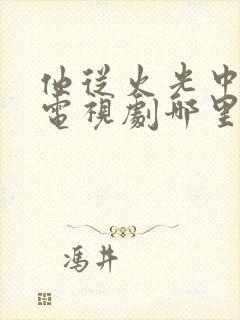 他從火光中
電視劇哪里
馮井